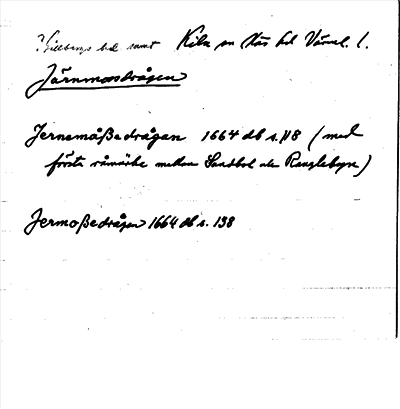 Gillbergs hd samt Kila sn Näs hd Värml. l.
Järnmossdrågen
Jernemåßedrågan 1664 db s. 118 (med
första råmärke mellan Sandbol och Ringlebyn)
Jermoßedrågen 1664 db s. 138